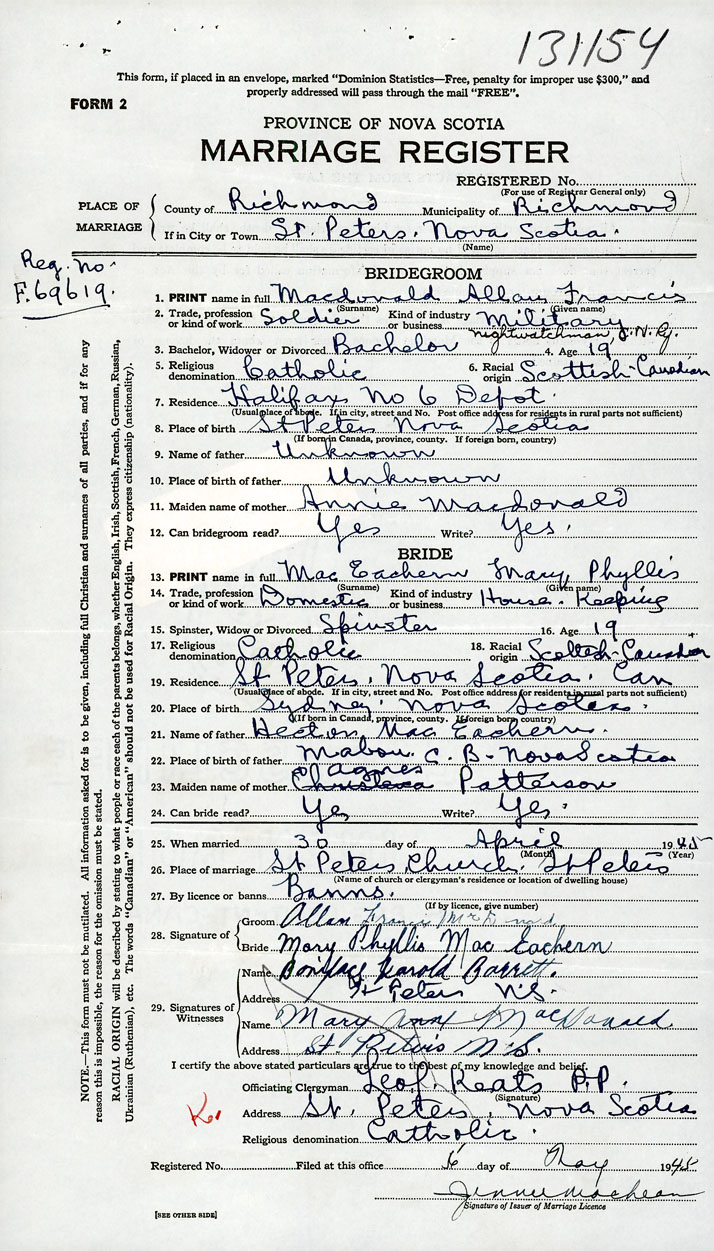 131154
This form, if placed in an envelope, marked "Dominion Statistics—Free, penalty for improper use $300," and
properly addressed will pass through the mail "FREE".
FORM 2
PROVINCE OF NOVA SCOTIA
MARRIAGE REGISTER
REGISTERED No.
(For use of Registrar General only)
PLACE OF MARRIAGE
County of Richmond Municipality of Richmond
If in City or Town St. Peters. Nova Scotia.
(Name)
Reg. no.
F.69619.
BRIDEGROOM
1. PRINT name in full Macdonald Allan Francis
(Surname) (Given name)
2. Trade, profession or kind of work Soldier Kind of industry or business Military
nightwatchman,
3. Bachelor, Widower or Divorced Bachelor 4. Age 19
5. Religious denomination Catholic 6. Racial origin Scottish-Canadian
7. Residence Halifax No 6 Depot.
(Usual place of abode. If in city, street and No. Post office address for residents in rural parts not sufficient)
8. Place of birth St Peters Nova Scotia
(If born in Canada, province, county. If foreign born, country)
9. Name of father Unknown
10. Place of birth of father Unknown
11. Maiden name of mother Annie Macdonald
12. Can bridegroom read? Yes Write? Yes.
BRIDE
13. PRINT name in full Mac Eachern Mary Phyllis
(Surname) (Given name)
14. Trade, profession or kind of work Domestic Kind of industry or business House-Keeping
15. Spinster, Widow or Divorced Spinster 16. Age 19
17. Religious denomination Catholic 18. Racial origin Scottish-Canadian
19. Residence St Peters, Nova Scotia. Can
(Usual place of abode. If in city, street and No. Post office address for residents in rural parts not sufficient)
20. Place of birth Sydney. Nova Scotia.
(If born in Canada, province, county. If foreign born, country)
21. Name of father Hector Mac Eachern.
22. Place of birth of father Mabou. C. B. Nova Scotia
Agnes
23. Maiden name of mother Christena Patterson
24. Can bride read? Yes Write? Yes.
25. When married 30 day of April 1945
(Month) (Year)
26. Place of marriage St Peters Church. St Peters
(Name of church or clergyman's residence or location of dwelling house)
27. By licence or banns Banns.
(If by licence, give number)
28. Signature of
Groom Allan Francis
Bride Mary Phyllis Mac Eachern
29. Signatures of Witnesses
Name Boniface Harold Barrett.
Address St Peters N.S.
Name Mary Ann MacDonald
Address St. Peters N.S.
I certify the above stated particulars are true to the best of my knowledge and belief.
Officiating Clergyman Leo J. Keats P.P.
(Signature)
Address St. Peters, Nova Scotia
Religious denomination Catholic.
Registered No. Filed at this office 6 day of May 1945
Signature of Issuer of Marriage Licence
[SEE OTHER SIDE]
NOTE.—This form must not be mutilated. All information asked for is to be given, including full Christian and surnames of all parties, and if for any
reason this is impossible, the reason for the omission must be stated.
RACIAL ORIGIN will be described by stating to what people or race each of the parents belongs, whether English, Irish, Scottish, French, German, Russian,
Ukrainian (Ruthenian), etc. The words "Canadian" or "American" should not be used for Racial Origin. They express citizenship (nationality).